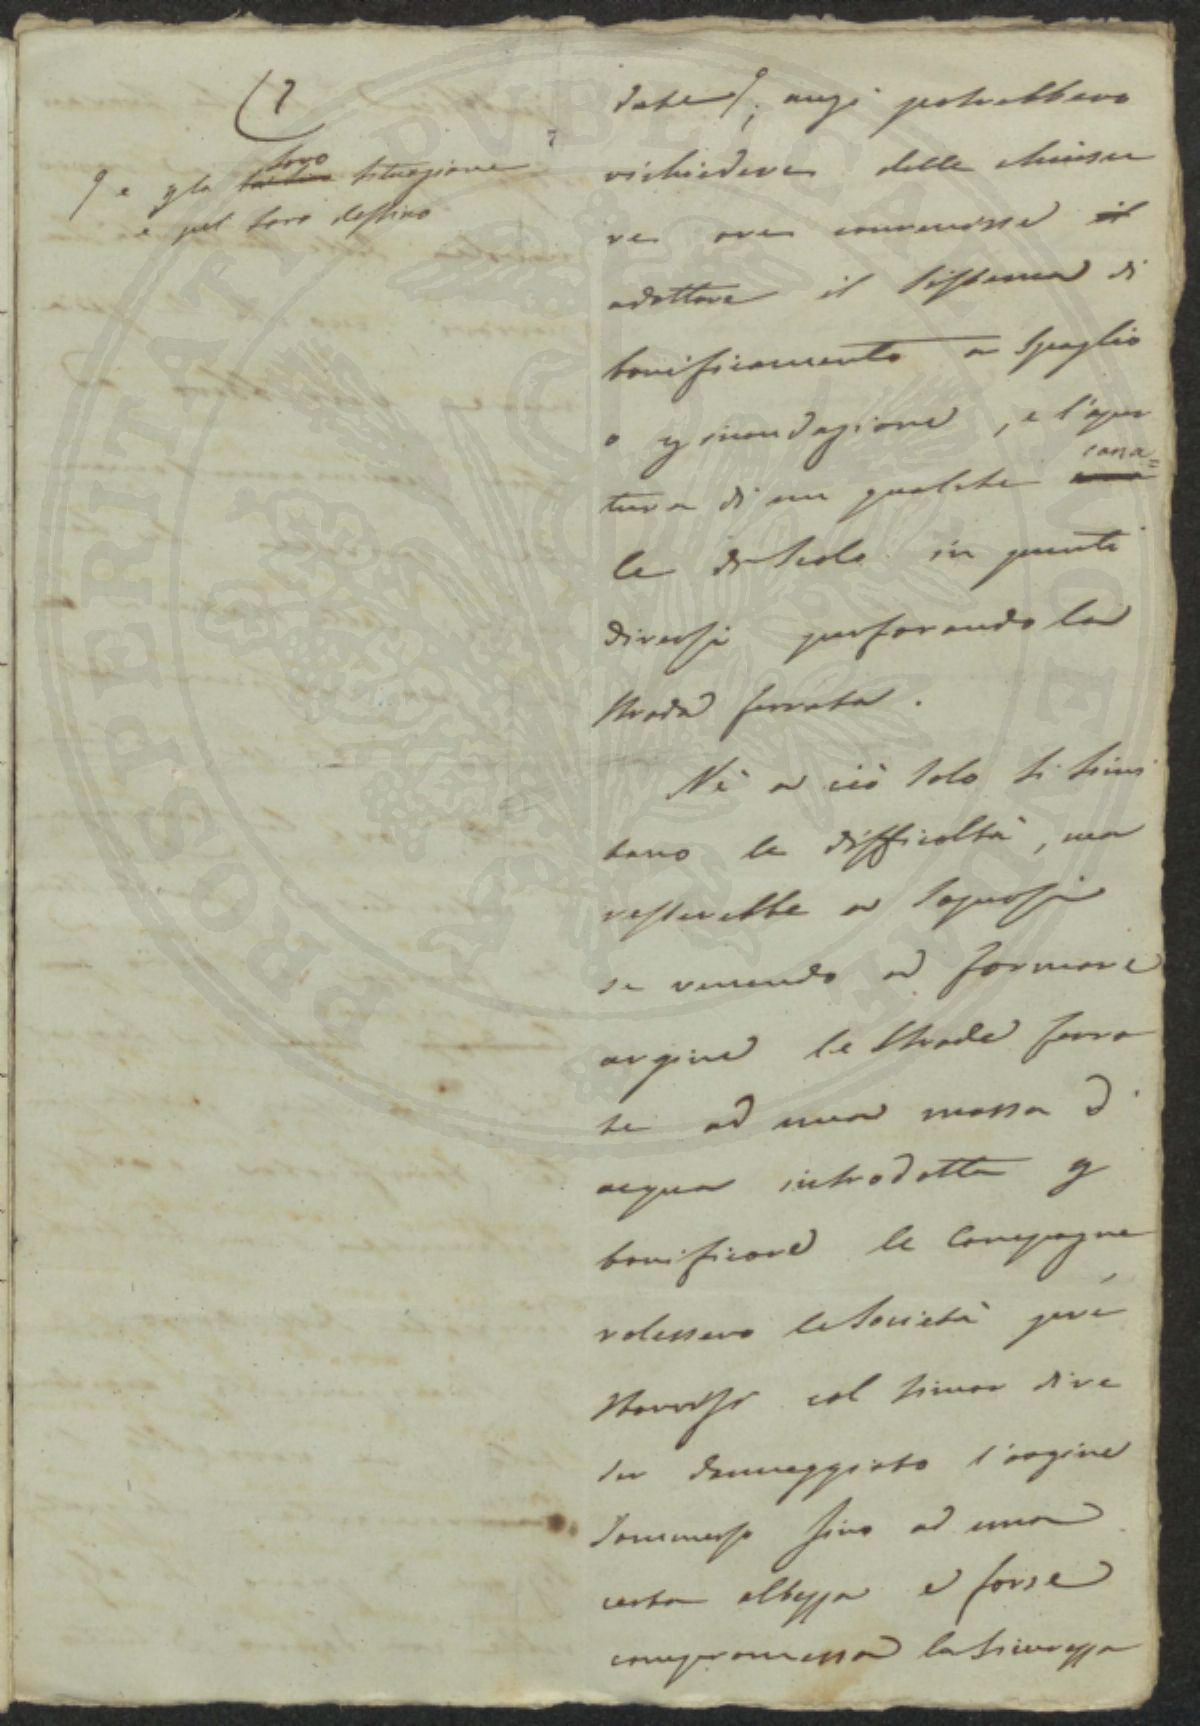 (7
7
e pla loro situazione
e pel loro destino
date, anzi potrebbero
richiedere delle chiusu
re ove convenisse il
adottare il sistema di
bonificamento a spaglio
o p inondazione, e l'aper
tura di un qualche cana=
le di scolo in punti
diversi perforando la
strada ferrata.
Nè a ciò solo si limi
tano le difficoltà, ma
resterebbe a sapersi
se venendo a formare
argine le strade ferra
te ad una massa d'
acqua introdotta p
bonificare le campagne
volessero le Società pre
starvisi col timor di ve
der danneggiato l'argine
sommerso fino ad una
certa altezza e forse
compromessa la sicurezza
PROSPERITATI PVBLICAE AVGENDAE